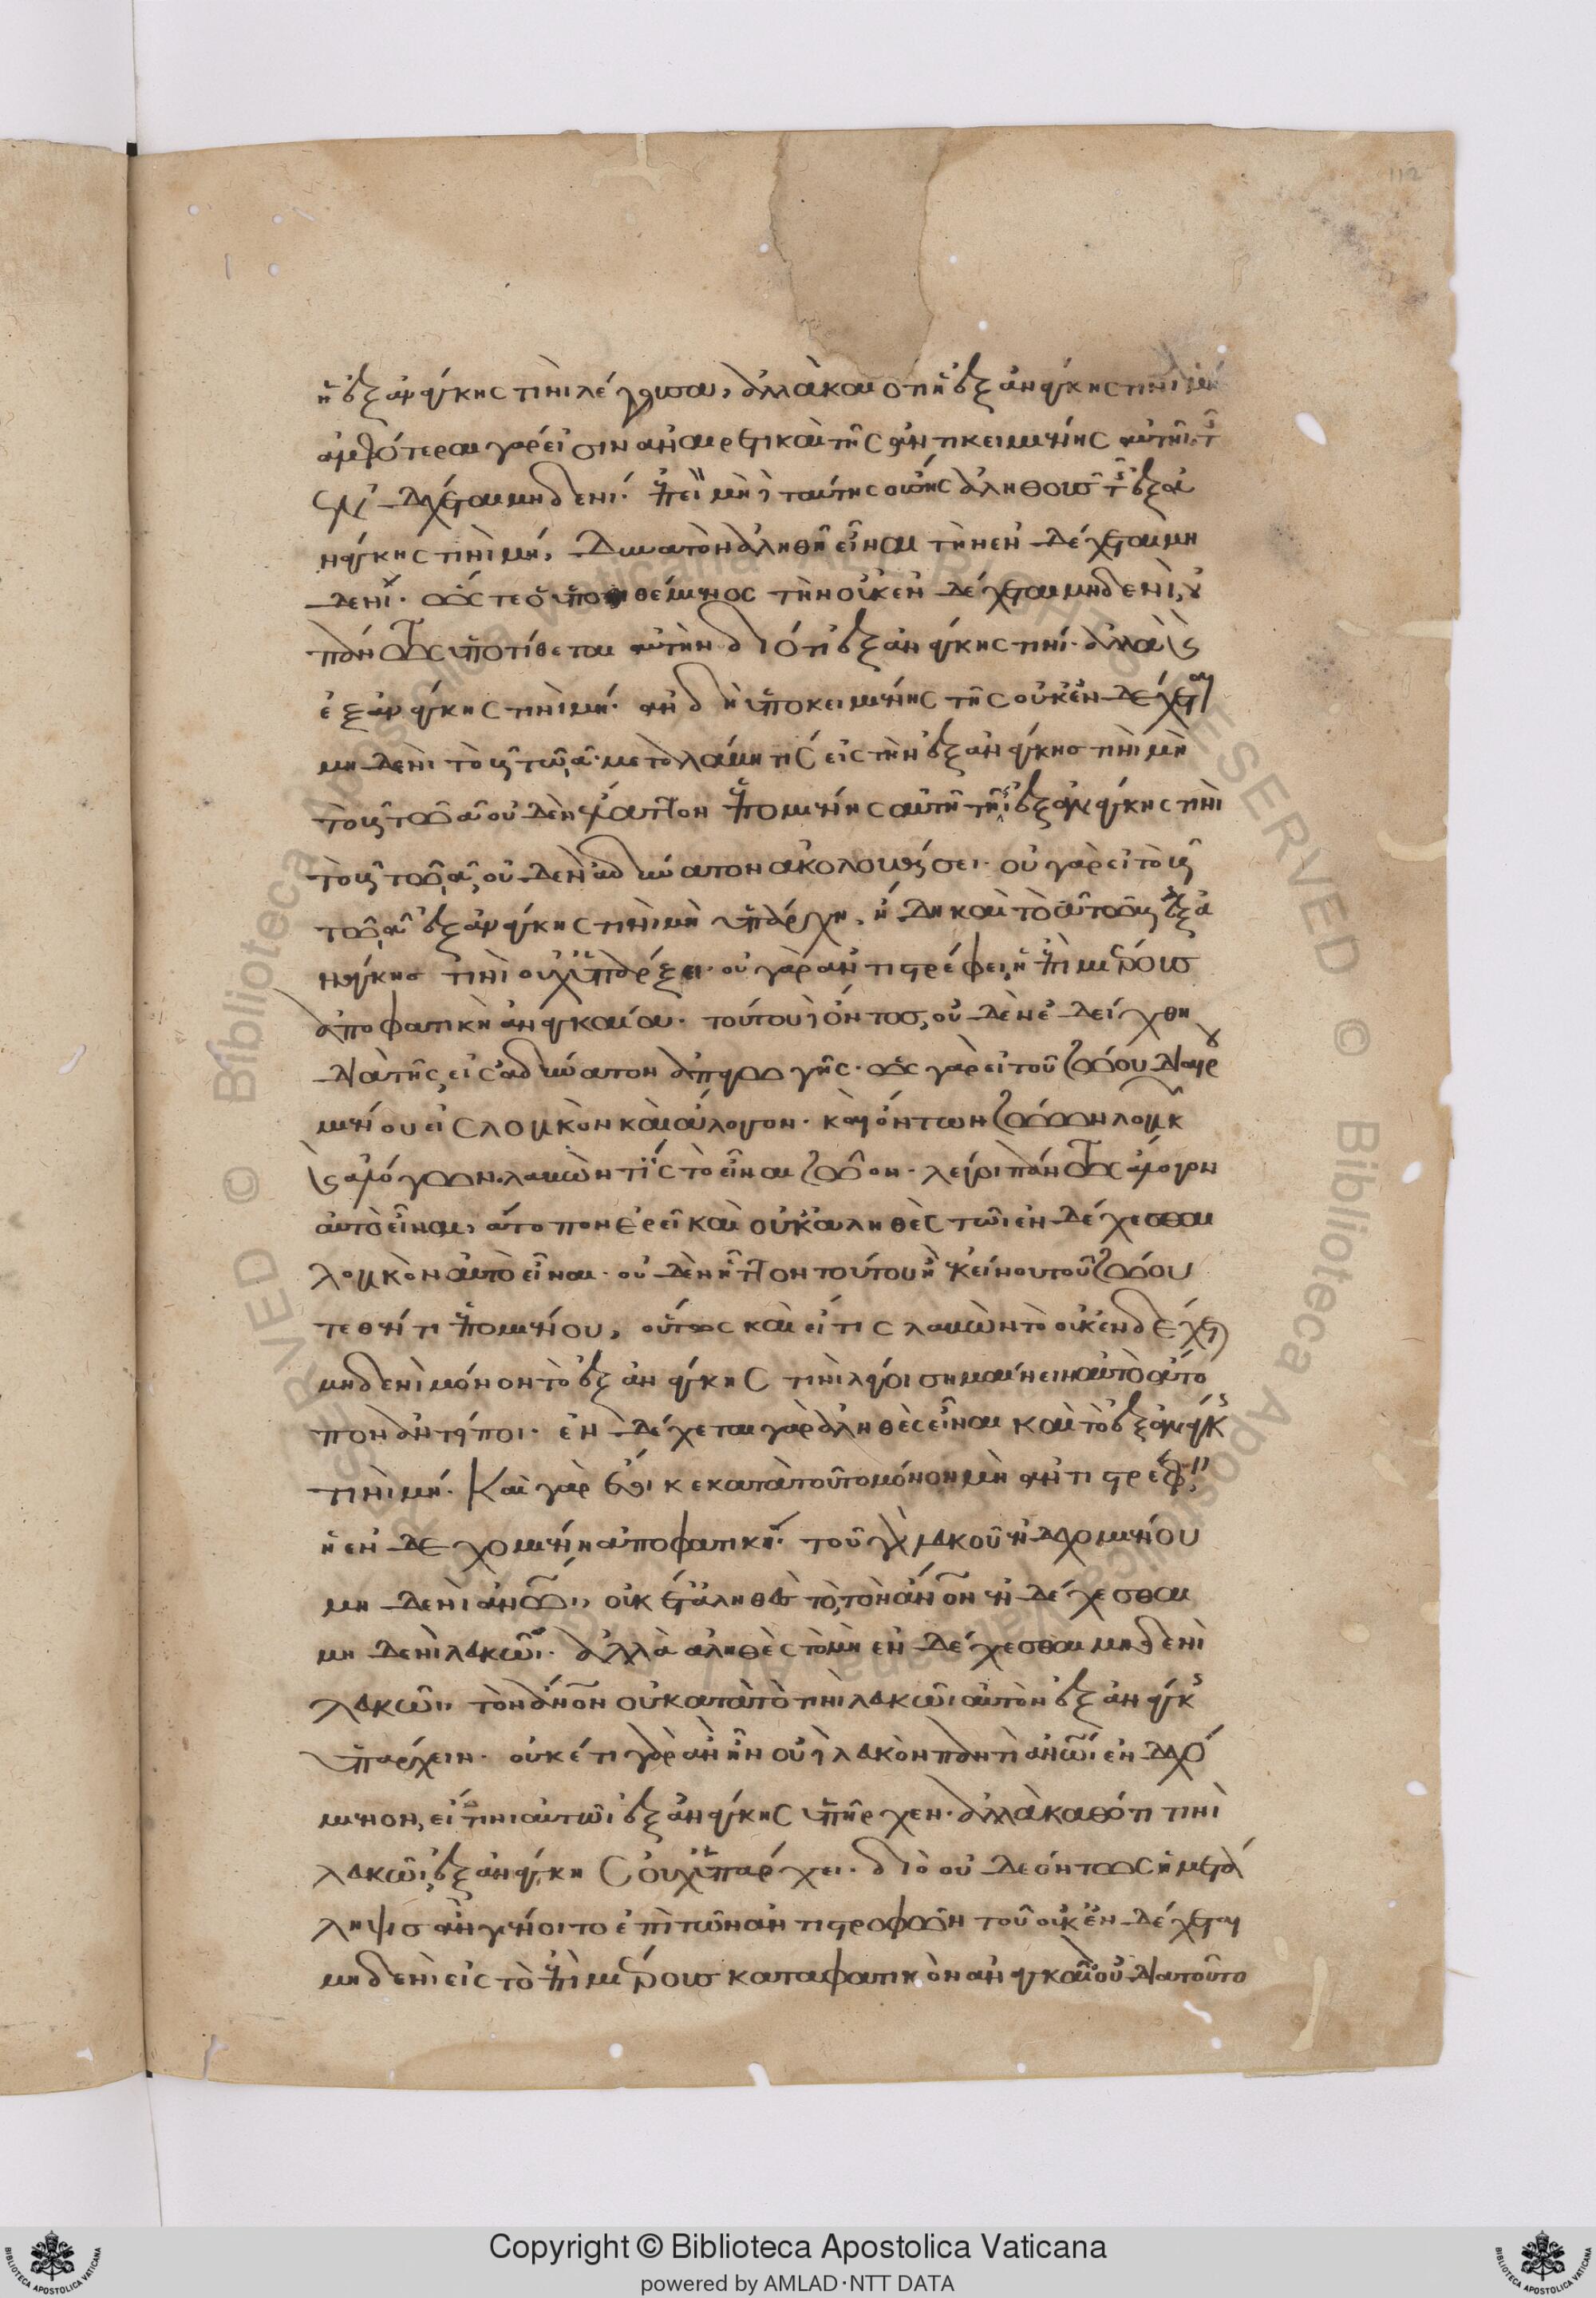 112
ἢ ἐξ ἀνάγκης τινὶ λέγουσαν, ἀλλὰ καὶ ὅτι ἢ ἐξ ἀνάγκης τινὶ μή
ἀμφότεραι γάρ εἰσιν ἀναιρετικαὶ τῆς ἀντικειμένης αὐτῆι, τ
ἐνδέχεται μηδενί. ἐπεὶ μὴ ταύτης οὔσης ἀληθοῦς τῆς ἐξ ἀ
νάγκης τινὶ μή, δυνατὸν ἀληθῆ εἶναι τὴν ἐνδέχεται μη
δενί. ὥστε ὁ ὑποθέμενος τὴν οὐκ ἐνδέχεται μηδενὶ, οὐ
πάντως ὑποτίθεται αὐτὴν διότι ἐξ ἀνάγκης τινί. ἀλλὰ καὶ
ἐξ ἀνάγκης τινὶ μή. ἂν δὴ ὑποκειμένης τῆς οὐκ ἐνδέχεται
μηδενὶ τὸ β τῶι α. μεταλάβηι τις εἰς τὴν ἐξ ἀνάγκης τινὶ μὴ
τὸ β τῶ α οὐδὲν ἔλαττον ἑπομένης αὐτῆ τῆς ἐξ ἀνάγκης τινὶ
τὸ β τῶ α, οὐδὲν ἀδύνατον ἀκολουθήσει. οὐ γὰρ εἰ τὸ β
τῶ α ἐξ ἀνάγκης τινὶ μὴ ὑπάρχη, ἤδη καὶ τὸ α τῶ β ἐξ ἀ
νάγκης τινὶ οὐχ ὑπάρξει. οὐ γὰρ ἀντιστρέφει, ἡ ἐπὶ μέρους
ἀποφατικὴ ἀναγκαία. τούτου ὄντος, οὐδὲν ἐδείχθη
διὰ τῆς εἰς ἀδύνατον ἀπαγωγῆς. ὡς γὰρ εἰ τοῦ ζώου διαιρου
μένου εἰς λογικὸν καὶ ἄλογον. καὶ ὄντων ζώων λογικῶν
καὶ ἀλόγων. λαβών τις τὸ εἶναι ζῶον. λέγοι πάντως ἄλογον
αὐτὸ εἶναι, ἄτοπον ἐρεῖ καὶ οὐκ ἀληθὲς τῶι ἐνδέχεσθαι
λογικὸν αὐτὸ εἶναι. οὐδὲν ἧττον τούτου ἢ ἐκείνου τοῦ ζώου
τεθέντι ἑπομένου, οὕτως καὶ εἴ τις λαβὼν τὸ οὐκ ἐνδέχεται
μηδενὶ μόνον τὸ ἐξ ἀνάγκης τινὶ λέγοι σημαίνειν αὐτὸ ἄτο
πον ἂν εἴποι. ἐνδέχεται γὰρ ἀληθὲς εἶναι καὶ τὸ ἐξ ἀνάγκης
τινὶ μή. Καὶ γὰρ ἔοικε κατὰ τοῦτο μόνον μὴ ἀντιστρέφειν
ἡ ἐνδεχομένη ἀποφατική. τοῦ γὰρ λευκοῦ ἐνδεχομένου
μηδενὶ ἀνθρώπωι, οὐκ ἔστ ἀληθὲς τὸ, τὸν ἄνθρωπον ἐνδέχεσθαι
μηδενὶ λευκῶι. ἀλλὰ ἀληθὲς τὸ μὴ ἐνδέχεσθαι μηδενὶ
λευκῶι, τὸν ἄνθρωπον οὐ κατὰ τὸ τινὶ λευκῶι αὐτὸν ἐξ ἀνάγκης
ὑπάρχειν. οὐκέτι γὰρ ἂν ἦν οὐ λευκὸν παντὶ ἀνθρώπωι ἐνδεχό
μενον, εἴ τινι αὐτῶι ἐξ ἀνάγκης ὑπῆρχεν. ἀλλὰ καθότι τινὶ
λευκῶι, ἐξ ἀνάγκης οὐχ ὑπάρχει. διὸ οὐ δεόντως ἡ μετά
ληψις ἂν γένοιτο ἐπὶ τῶν ἀντιστροφῶν τοῦ οὐκ ἐνδέχεται
μηδενὶ εἰς τὸ ἐπὶ μέρους καταφατικὸν ἀναγκαῖον. διὰ τοῦτο
Copyright © Biblioteca Apostolica Vaticana
powered by AMLAD·NTT DATA